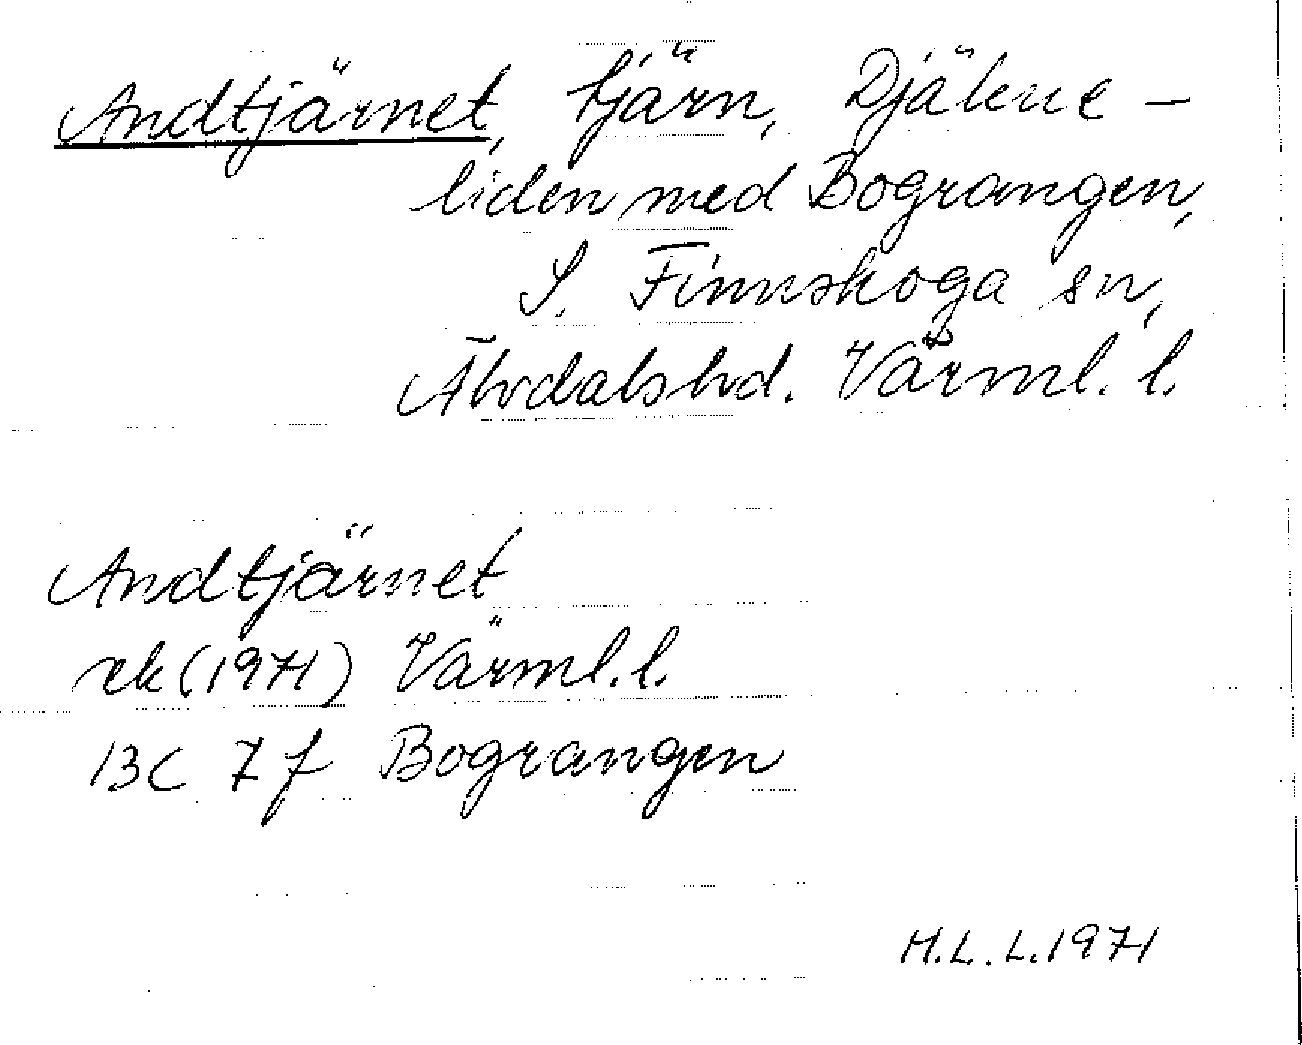 Andtjärnet, tjärn, Djäkne-
liden med Bograngen,
S. Finnskoga sn,
Älvdals hd. Värml. l.
Andtjärnet
rek (1971) Värml. l.
13C 7f Bograngen
H.L.L. 1971